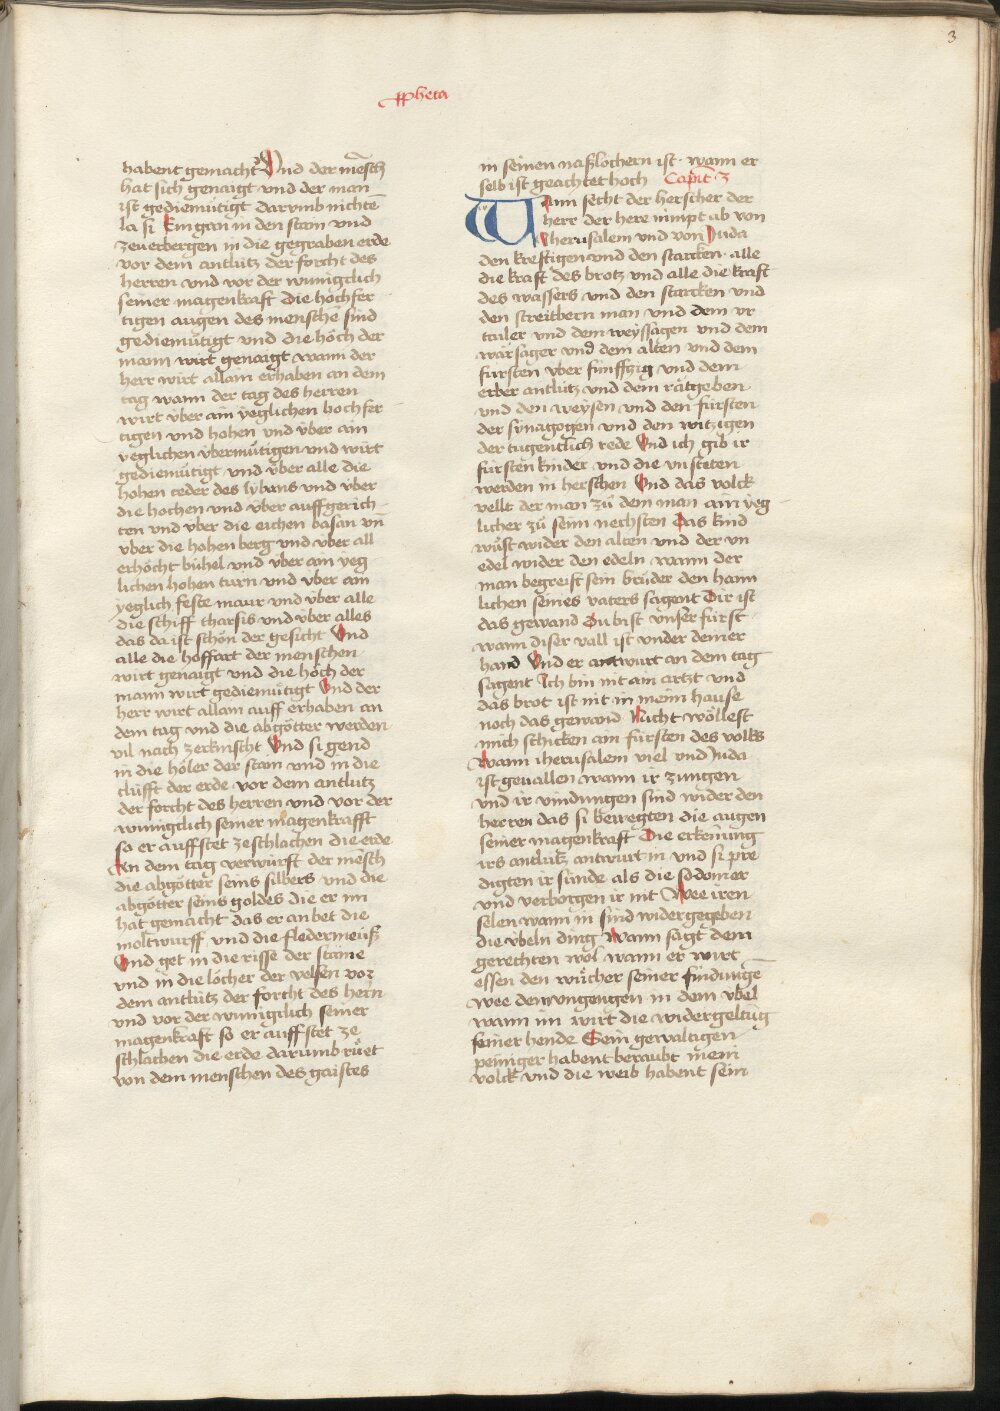 3
ꝓpheta
habent gemacht Vnd der mēsch
hat sich genaigt vnd der man
ist gediemütigt darvmb nichte
la si Eingan in den stain vnd
zeuerbergen in die gegraben erde
vor dem antlütz der forcht des
herren vnd vor der wuniglich
seiner magenkraft die hochfer
tigen augen des menschē sind
gediemütigt vnd die höch der
mann wirt genaigt wann der
herr wirt allain erhaben an dem
tag wann der tag des herren
wirt vber ain yeglichen hochfer
tigen vnd hohen vnd vber ain
yeglichen vbermütigen vnd wirt
gediemütigt vnd vber alle die
hohen ceder des lybans vnd vber
die hochen vnd vber auffgerich
ten vnd vber die eichen basan vn̄
vber die hohen berg vnd vber all
erhöcht bühel vnd vber ain yeg
lichen hohen turn vnd vber ain
yeglich feste maur vnd vber alle
die schiff tharsis vnd vber alles
das da ist schön der gesicht Vnd
alle die hoffart der menschen
wirt genaigt vnd die höch der
mann wirt gediemütigt Vnd der
herr wirt allain auff erhaben an
dem tag vnd die abgötter werden
vil nach zerknischt Vnd si gend
in die höler der stain vnd in die
clüfft der erde vor dem antlutz
der forcht des herren vnd vor der
wuniglich seiner magenkrafft
so er auffstet zeschlachen die erde
An dem tag verwürft der mēsch
die abgötter seins silbers vnd die
abgötter seins goldes die er im
hat gemacht das er anbet die
moltwurff vnd die fledermeuß
Vnd get in die risse der staine
vnd in die löcher der velsen vor
dem antlütz der forcht des herrn
vnd vor der wuniglich seiner
magenkraft so er auffstet ze
schlachen die erde darumb rüet
von dem menschen des gaistes
in seinen naßlöchern ist wann er
selb ist geachtet hoch Capit 3
Wann secht der herscher der
herr der here nimpt ab von
Jherusalem vnd von Juda
den kreftigen vnd den starcken alle
die kraft des brotz vnd alle die kraft
des wassers vnd den starcken vnd
den streitbern man vnd dem vr
tailer vnd dem weyssagen vnd dem
warsager vnd dem alten vnd dem
fürsten vber fünffzig vnd dem
erber antlütz vnd dem rätgeben
vnd den weysen vnd den fürsten
der synagogen vnd den witzigen
der tugentlich rede Vnd ich gib ir
fürsten kinder vnd die vnsteten
werden in herschen Vnd das volck
vellt der man zů dem man ain yeg
licher zů seim nechsten Das kind
wüst wider den alten vnd der vn
edel wider den edeln wann der
man begreift sein brüder den haim
lichen seines vaters sagent Dir ist
das gewand Du bist vnser fürst
wann diser vall ist vnder deiner
hand Vnd er antwurt an dem tag
sagent Ich bin nit ain artzt vnd
das brot ist nit in meim hause
noch das gewand Nicht wöllest
mich schicken ain fürsten des volks
Wann iherusalem viel vnd Juda
ist geuallen wann ir zungen
vnd ir vindungen sind wider den
herren das si bewegten die augen
seiner magenkraft Die erkenung
irs antlütz antwurt in vnd si pre
digten ir sünde als die sodomer
vnd verborgen ir nit Wee iren
selen wann in sind widergegeben
die vbeln ding Wann sagt dem
gerechten wol wann er wirt
essen den wücher seiner findunge
wee dem vngengen in dem vbel
wann im wirt die widergeltūg
seiner hende Sein gewaltigen
peiniger habent beraubt mein
volck vnd die weib habent sein